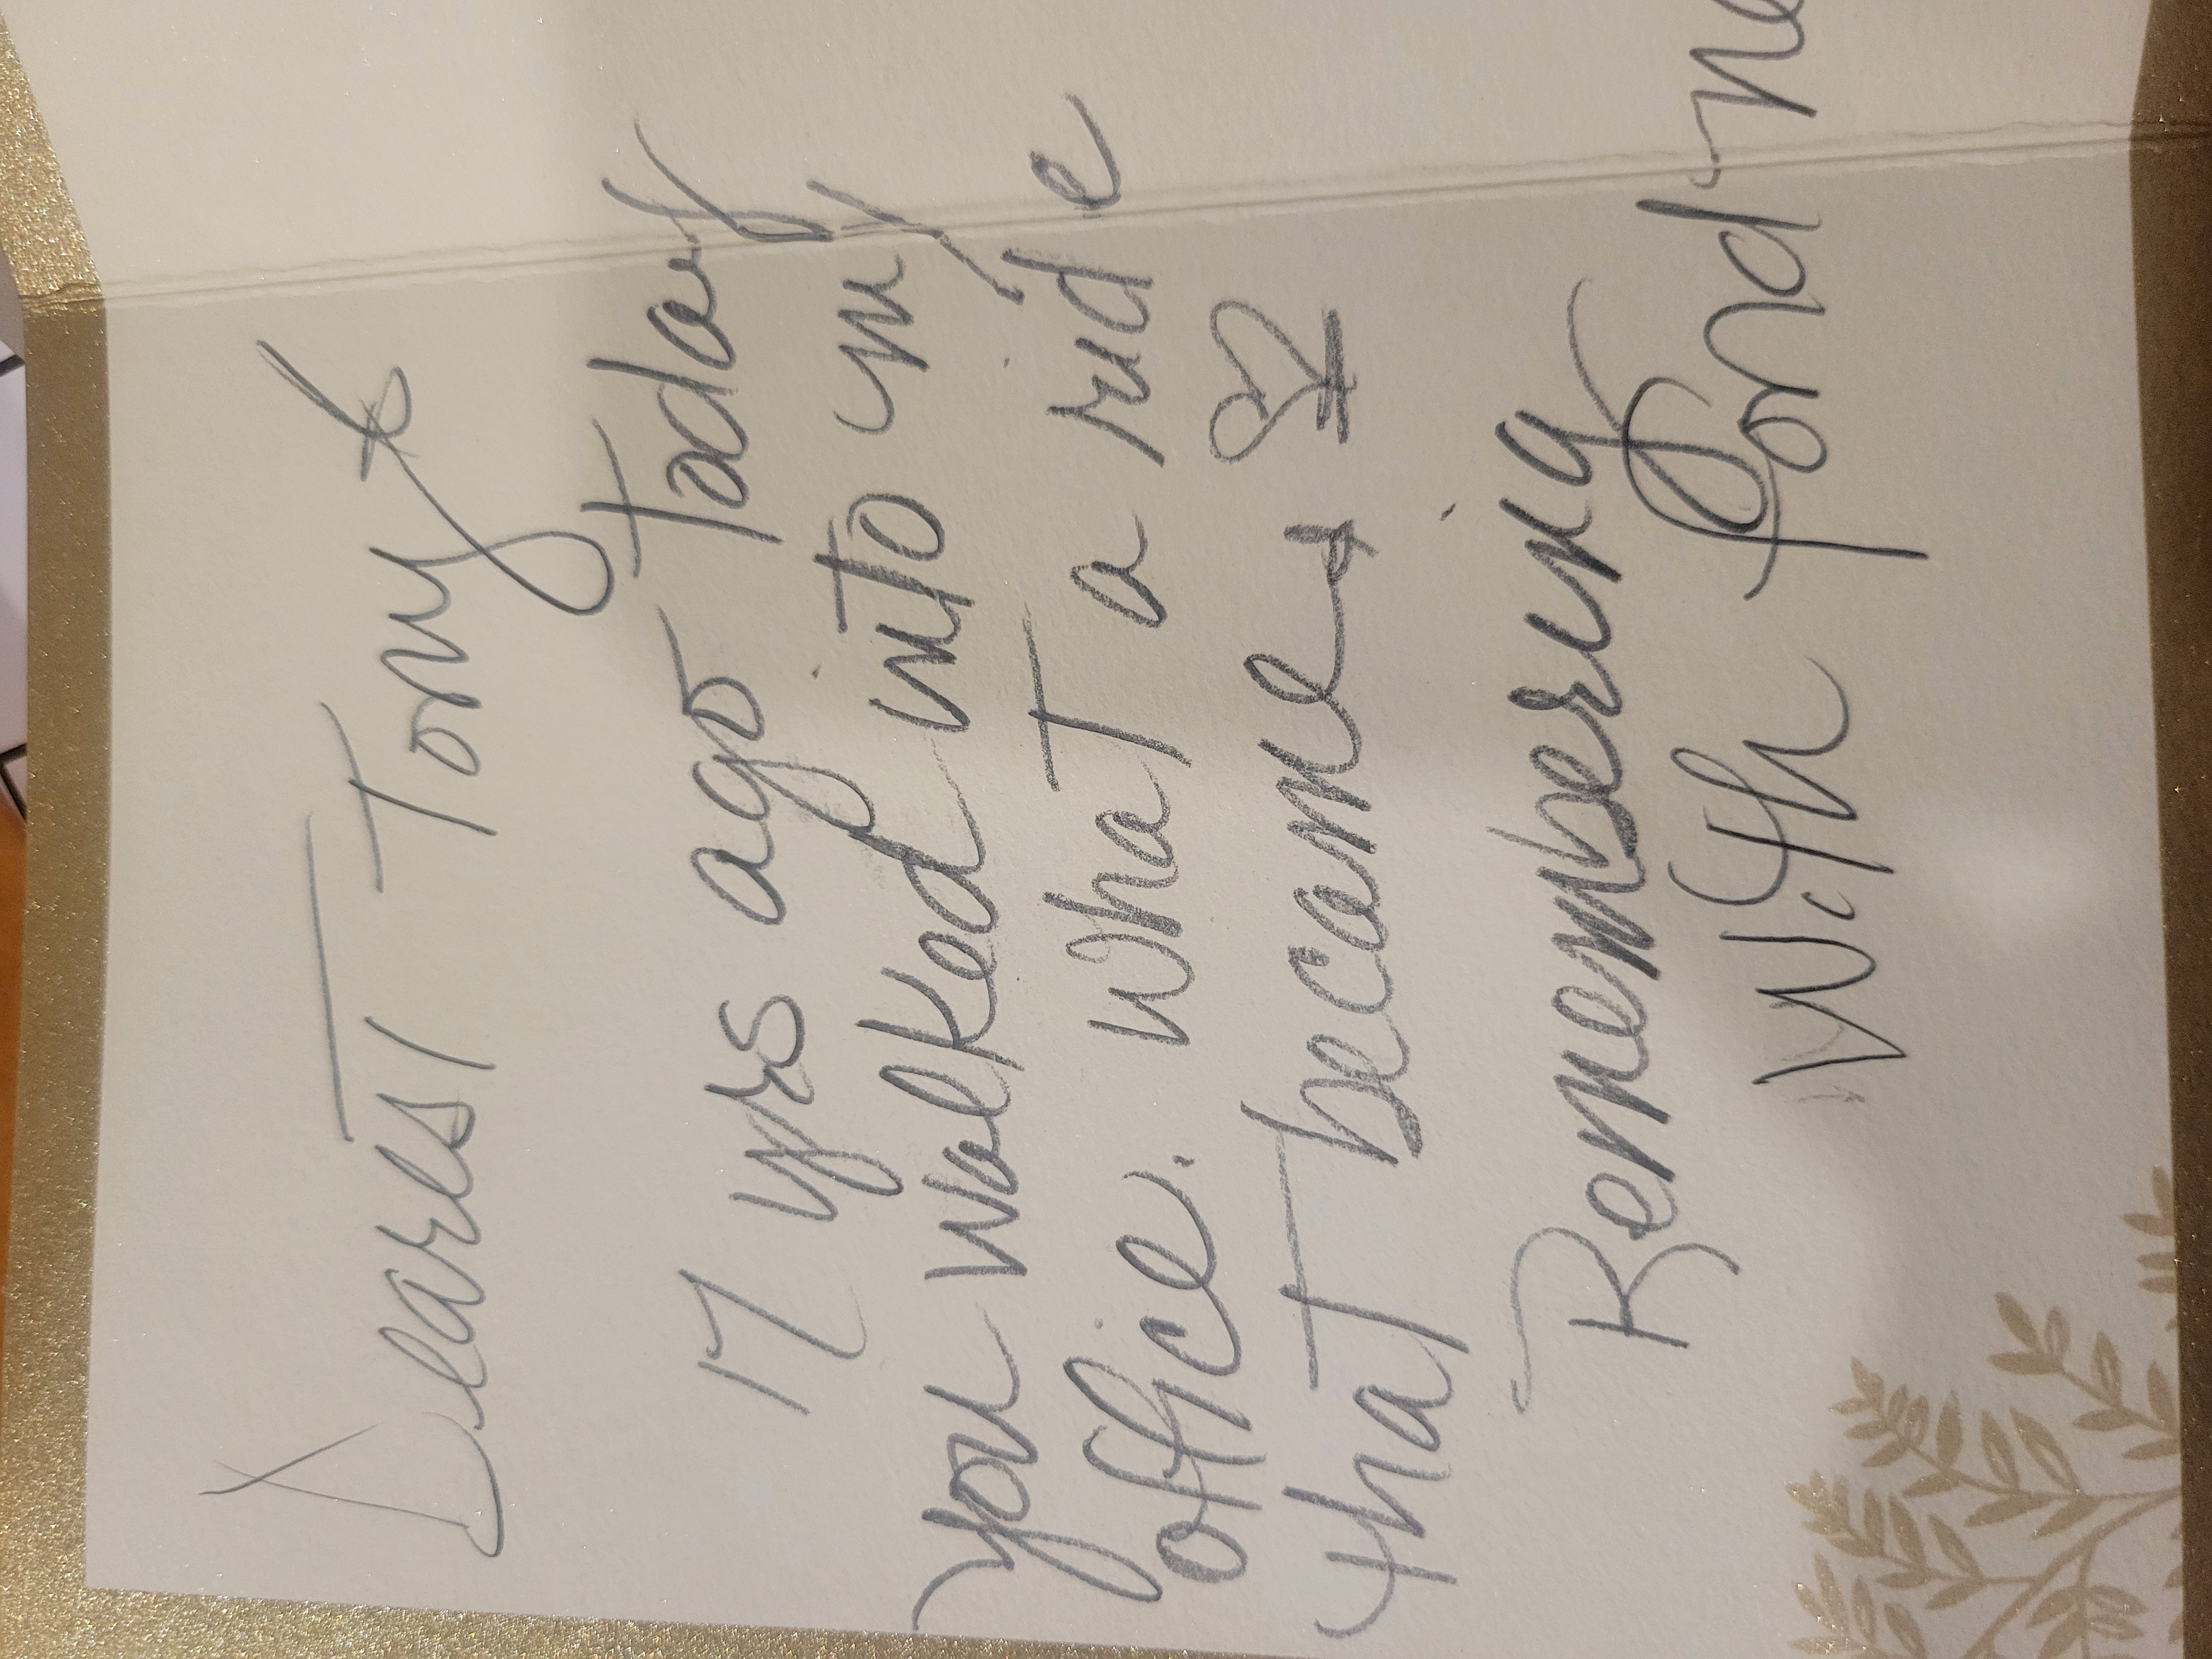 Dearest Tony
17 yrs ago today
you walked into my
office. What a ride
that became
Remembering
With fond me